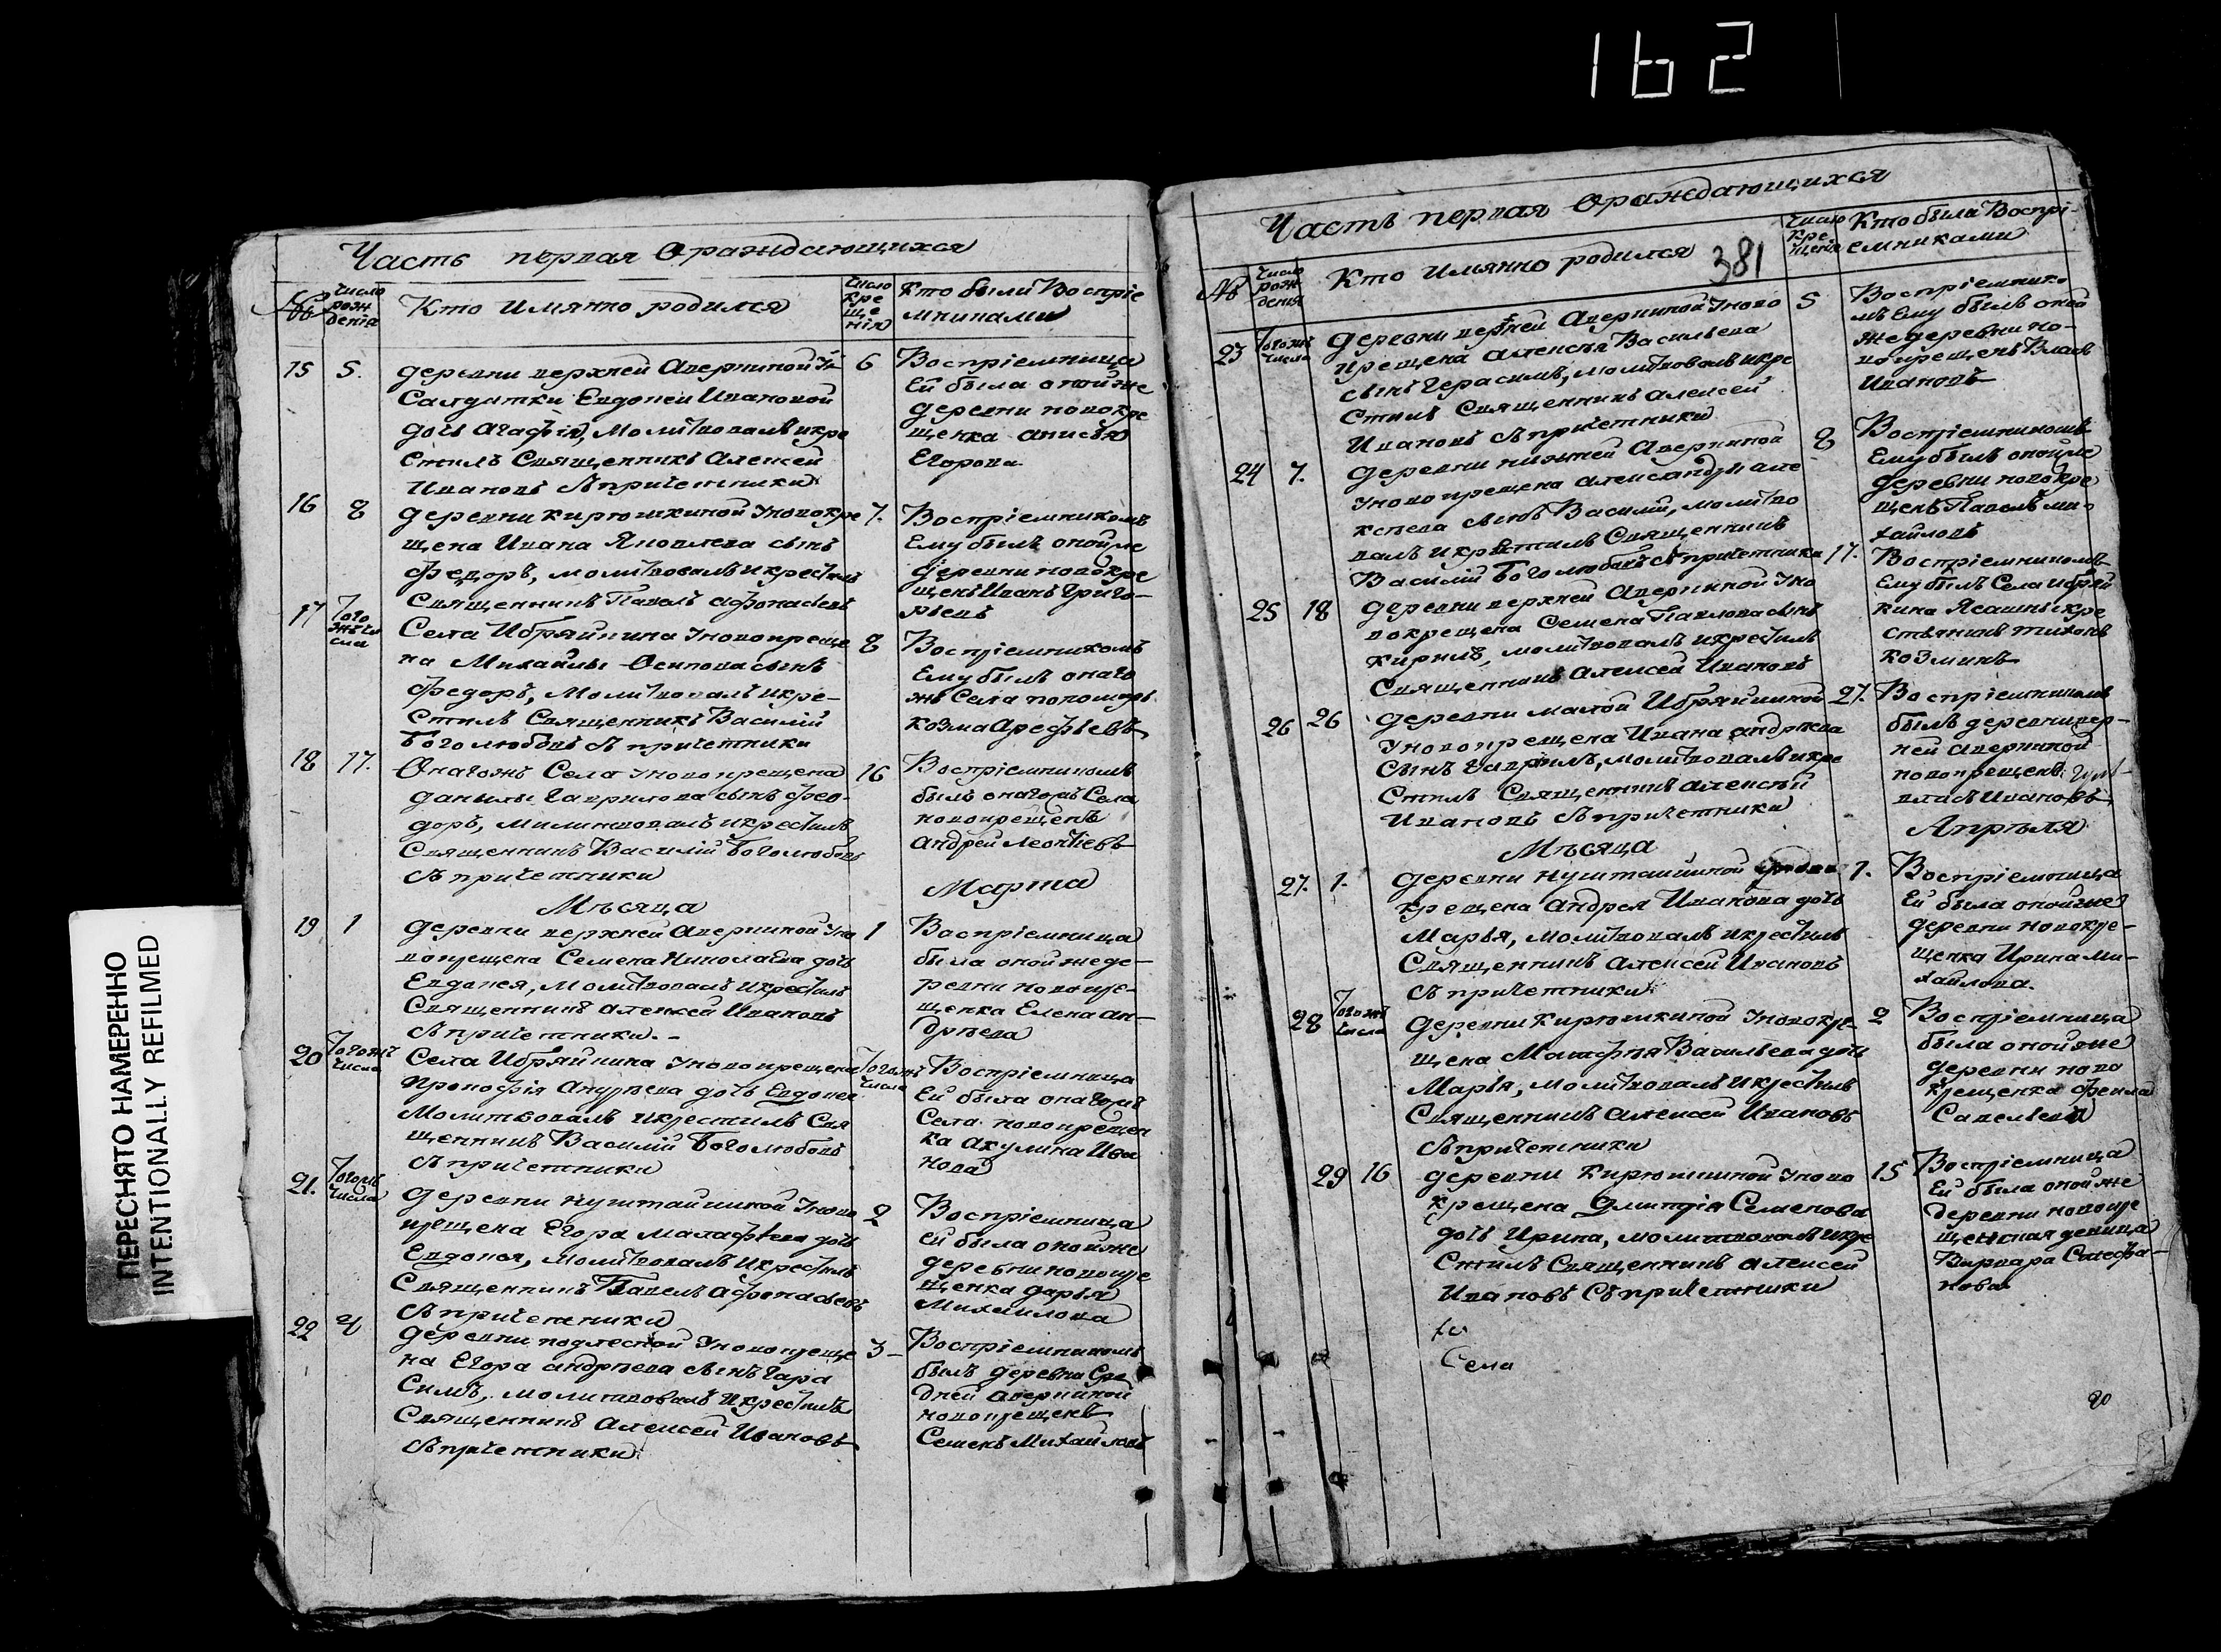 162
ПЕРЕСНЯТО НАМЕРЕННО
INTENTIONALLY REFILMED
Часть первая Ораждающихся
№ число рождения
Кто Имянно родился
число кре ще нія
Кто были Воспріе
мниками
15 5. деревни верхней Аверкиной У
Салдатки Евдокеи Ивановой
дочь Агафія, Молитвовалъ икре
стилъ Священникъ Алексей
Ивановъ съпричетники
6 Воспріемница
Ей была оной же
деревни новокре
щенка Анисья
Егорова
16 8 деревни кирюшкиной Уновокре
щена Ивана Яковлева сынъ
Федоръ, молитвовалъ икрестилъ
Священникъ Павелъ Афонасьевъ
7. Воспріемникомъ
Ему былъ оной же
деревни новокре
щенъ Иванъ Григо-
рьевъ
17 Того жъ чи сла Села Ибряйкина Уновокреще
на Михайлы Осипова сынъ
Федоръ, Молитвовалъ икре-
стилъ Священникъ Василій
Боголюбовъ съ причетники
8 Воспріемникомъ
Ему былъ онаго
жъ Села пономарь
козма Арефьевъ
18 11. Онагожъ Села Уновокрещена
данилы Гаврилова сынъ Фео-
доръ, Милитвовалъ икрестилъ
Священникъ Василій Боголюбовъ
съ причетники
16 Воспріемникомъ
былъ онагожъ Села
новокрещенъ
Андрей Леонтіевъ
Мѣсяца Марта
19 1 деревни верхней Аверкиной Уно
вокрещена Семена Николаева дочь
Евдокея, Молитвовалъ икрестилъ
Священникъ Алексей Ивановъ
съ причетники.-
1 Воспріемница
была оной жеде-
ревни новокре-
щенка Елена Ан-
дрѣева
20 Тогожъ числа Села Ибряйкина Уновокрещена
Прокофія Андрѣева дочь Евдокея
Молитвовалъ икрестилъ Свя
щенникъ Василій Боголюбовъ
съ причетники
Тогожъ числа Воспріемница
Ей была онагожъ
Села новокрещен
ка Акулина Ива
нова
21. Тогожъ числа деревни нуштайкиной Уново
крещена Егора Малафѣева дочь
Евдокея, Молитвовалъ икрестилъ
Священникъ Павелъ Афонасьевъ
съ причетники
2 Воспріемница
ей была оной же
деревни новокре
щенка дарья
Михайлова
22 2 деревни подлесной Уновокреще
на Егора Андрѣева сынъ Гара
Симъ, молитвовалъ икрестилъ
Священникъ Алексей Ивановъ
съпричетники
3 Воспріемникомъ
былъ деревни Сре
дней Аверкиной
новокрещенъ
Семенъ Михайловъ
Часть первая Ораждающихся
381
№ число рождения
Кто Имянно родился
число кре щенія
Кто была Воспрі-
емниками
23 Тогожъ числа деревни верхней Аверкиной Уново
крещена Алексѣя Васильева
сынъ Герасимъ, молитвовалъ икре
стилъ Священникъ Алексей
Ивановъ съпричетники
5 Воспріемнико
мъ Ему былъ оной
же деревни но-
вокрещенъ Власъ
Ивановъ
24 7. деревни нижней Аверкиной
Уновокрещена Александры Але
ксѣева сынъ Василій, молитво
валъ икрестилъ Священникъ
Василій Боголюбовъ съ причетники
8 Воспріемникомъ
Ему былъ оной же
деревни новокре
щенъ Павелъ ми-
хайловъ
25 18 деревни верхней Аверкиной Уно
вокрещена Семена Павлова сынъ
кирилъ, молитвовалъ икрестилъ
Священникъ Алексей Ивановъ
17. Воспріемникомъ
Ему былъ Села Ибряй
кина Ясашный кре
стьянинъ тихонъ
козминъ
26 26 деревни малой Ибряйкиной
Уновокрещена Ивана Андрѣева
Сынъ Гаврилъ, молитвовалъ икре
стилъ Священникъ Алексѣй
Ивановъ съпричетники
27. Воспріемникомъ
былъ деревни вер-
ней Аверкиной
новокрещенъ
власъ Ивановъ
Мѣсяца Апрѣля
27. 1. деревни нуштайкиной Уново
крещена Андрея Иванова дочь
Марья, Молитвовалъ икрестилъ
Священникъ Алексей Ивановъ
съ причетники
1. Воспріемница
Ей была оной же
деревни новокре-
щенка Ирина Ми-
хайлова.
28 Тогожъ числа деревни Кирюшкиной Уновокре-
щена Малафѣя Васильева дочь
Марія, молитвовалъ икрестилъ
Священникъ Алексей Ивановъ
съпричетники
2 Воспріемница
была оной же
деревни ново
крещенка Фекла
Савельева
29 16 деревни Кирюшкиной Уново
крещена Дмитрія Семенова
дочь Ирина, молитвовалъ икре
стилъ Священникъ Алексей
Ивановъ Съпричетники
15 Воспріемница
Ей была оной же
деревни новокре
щенская девица
Варвара Стефа-
нова
Села
20